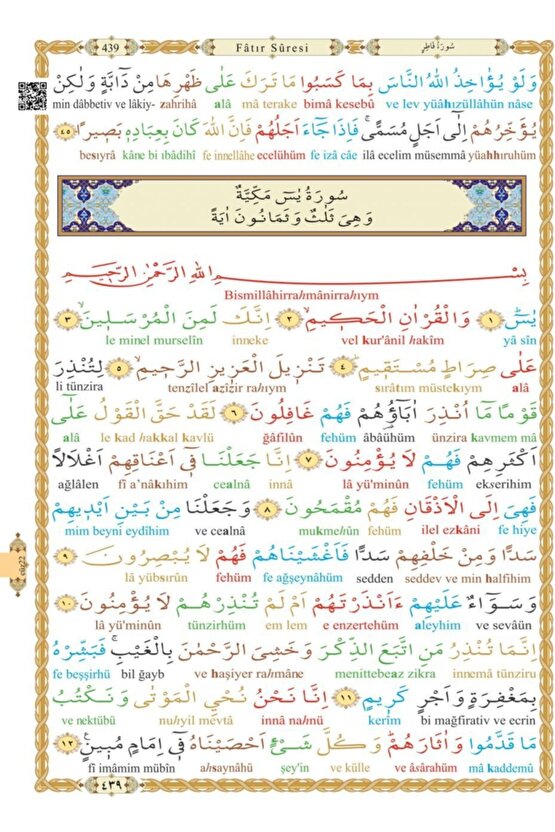 439
Fâtır Sûresi
سُورَةُ فَاطِرٍ
وَلَوْ يُؤَاخِذُ اللّٰهُ النَّاسَ بِمَا كَسَبُوا مَا تَرَكَ عَلٰى ظَهْرِهَا مِنْ دَٓابَّةٍ وَلٰكِنْ
min dâbbetiv ve lâkiy- zahrihâ alâ mâ terake bimâ kesebû ve lev yüâhızüllâhün nâse
يُؤَخِّرُهُمْ اِلٰٓى اَجَلٍ مُسَمًّىۚ فَاِذَا جَٓاءَ اَجَلُهُمْ فَاِنَّ اللّٰهَ كَانَ بِعِبَادِه۪ بَص۪يرًا ﴿٤٥﴾
besıyrâ kâne bi ıbâdihî fe innellâhe ecelühüm fe izâ câe ilâ ecelim müsemmâ yüahhıruhüm
سُورَةُ يٰسٓ مَكِّيَّةٌ
وَهِىَ ثَلٰثٌ وَثَمَانُونَ اٰيَةً
بِسْمِ اللّٰهِ الرَّحْمٰنِ الرَّح۪يمِ
Bismillâhirrahmânirrahıym
يٰسٓ ﴿١﴾ وَالْقُرْاٰنِ الْحَك۪يمِۙ ﴿٢﴾ اِنَّكَ لَمِنَ الْمُرْسَل۪ينَۙ ﴿٣﴾
le minel murselîn inneke vel kur'ânil hakîm yâ sîn
عَلٰى صِرَاطٍ مُسْتَق۪يمٍۜ ﴿٤﴾ تَنْز۪يلَ الْعَز۪يزِ الرَّح۪يمِۙ ﴿٥﴾ لِتُنْذِرَ
li tünzira tenzîlel azîzir rahıym sırâtım müstekıym alâ
قَوْمًا مَٓا اُنْذِرَ اٰبَٓاؤُ۬هُمْ فَهُمْ غَافِلُونَ ﴿٦﴾ لَقَدْ حَقَّ الْقَوْلُ عَلٰٓى
alâ le kad hakkal kavlü ğâfilûn fehüm âbâühüm ünzira kavmem mâ
اَكْثَرِهِمْ فَهُمْ لَا يُؤْمِنُونَ ﴿٧﴾ اِنَّا جَعَلْنَا ف۪ٓى اَعْنَاقِهِمْ اَغْلَالًا
ağlâlen fî a'nâkıhim cealnâ innâ lâ yü'minûn fehüm ekserihim
فَهِىَ اِلَى الْاَذْقَانِ فَهُمْ مُقْمَحُونَ ﴿٨﴾ وَجَعَلْنَا مِنْ بَيْنِ اَيْد۪يهِمْ
mim beyni eydîhim ve cealnâ mukmehûn fehüm ilel ezkâni fe hiye
سَدًّا وَمِنْ خَلْفِهِمْ سَدًّا فَاَغْشَيْنَاهُمْ فَهُمْ لَا يُبْصِرُونَ ﴿٩﴾
lâ yübsırûn fehüm fe ağşeynâhüm sedden seddev ve min halfihim
وَسَوَٓاءٌ عَلَيْهِمْ ءَاَنْذَرْتَهُمْ اَمْ لَمْ تُنْذِرْهُمْ لَا يُؤْمِنُونَ ﴿١٠﴾
lâ yü'minûn tünzirhüm em lem e enzertehüm aleyhim ve sevâün
اِنَّمَا تُنْذِرُ مَنِ اتَّبَعَ الذِّكْرَ وَخَشِىَ الرَّحْمٰنَ بِالْغَيْبِۚ فَبَشِّرْهُ
fe beşşirhü bil ğayb ve haşiyer rahmâne menittebeaz zikra innemâ tünziru
بِمَغْفِرَةٍ وَاَجْرٍ كَر۪يمٍ ﴿١١﴾ اِنَّا نَحْنُ نُحْيِ الْمَوْتٰى وَنَكْتُبُ
ve nektübü nuhyil mevtâ innâ nahnü kerîm bi mağfirativ ve ecrin
مَا قَدَّمُوا وَاٰثَارَهُمْۜ وَكُلَّ شَىْءٍ اَحْصَيْنَاهُ ف۪ٓى اِمَامٍ مُب۪ينٍ۟ ﴿١٢﴾
fî imâmim mübîn ahsaynâhü şey'in ve külle ve âsârahüm mâ kaddemû
cüz22
٤٣٩